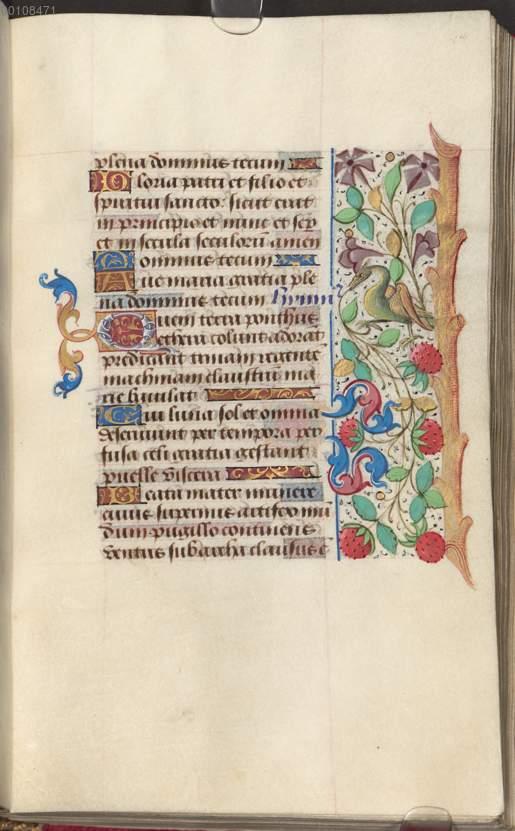 0108471
plena dominus tecum
Gloria patri et filio et
spiritui sancto: sicut erat
in principio et nunc et sep
et in secula seculorū amen
Dominus tecum
Aue maria gratia ple
na dominus tecum Hymn⁹
Quem terra ponthus
ethera colunt adorāt
predicant trinam regente
machinam claustrū ma
rie baiulat
Cui luna sol et omnia
deseruiunt per tempora per
fusa celi gratia gestant
puelle viscera
Beata mater munere
cuius supernus artifex mū
dum pugillo continens
ventris sub archa clausus ē